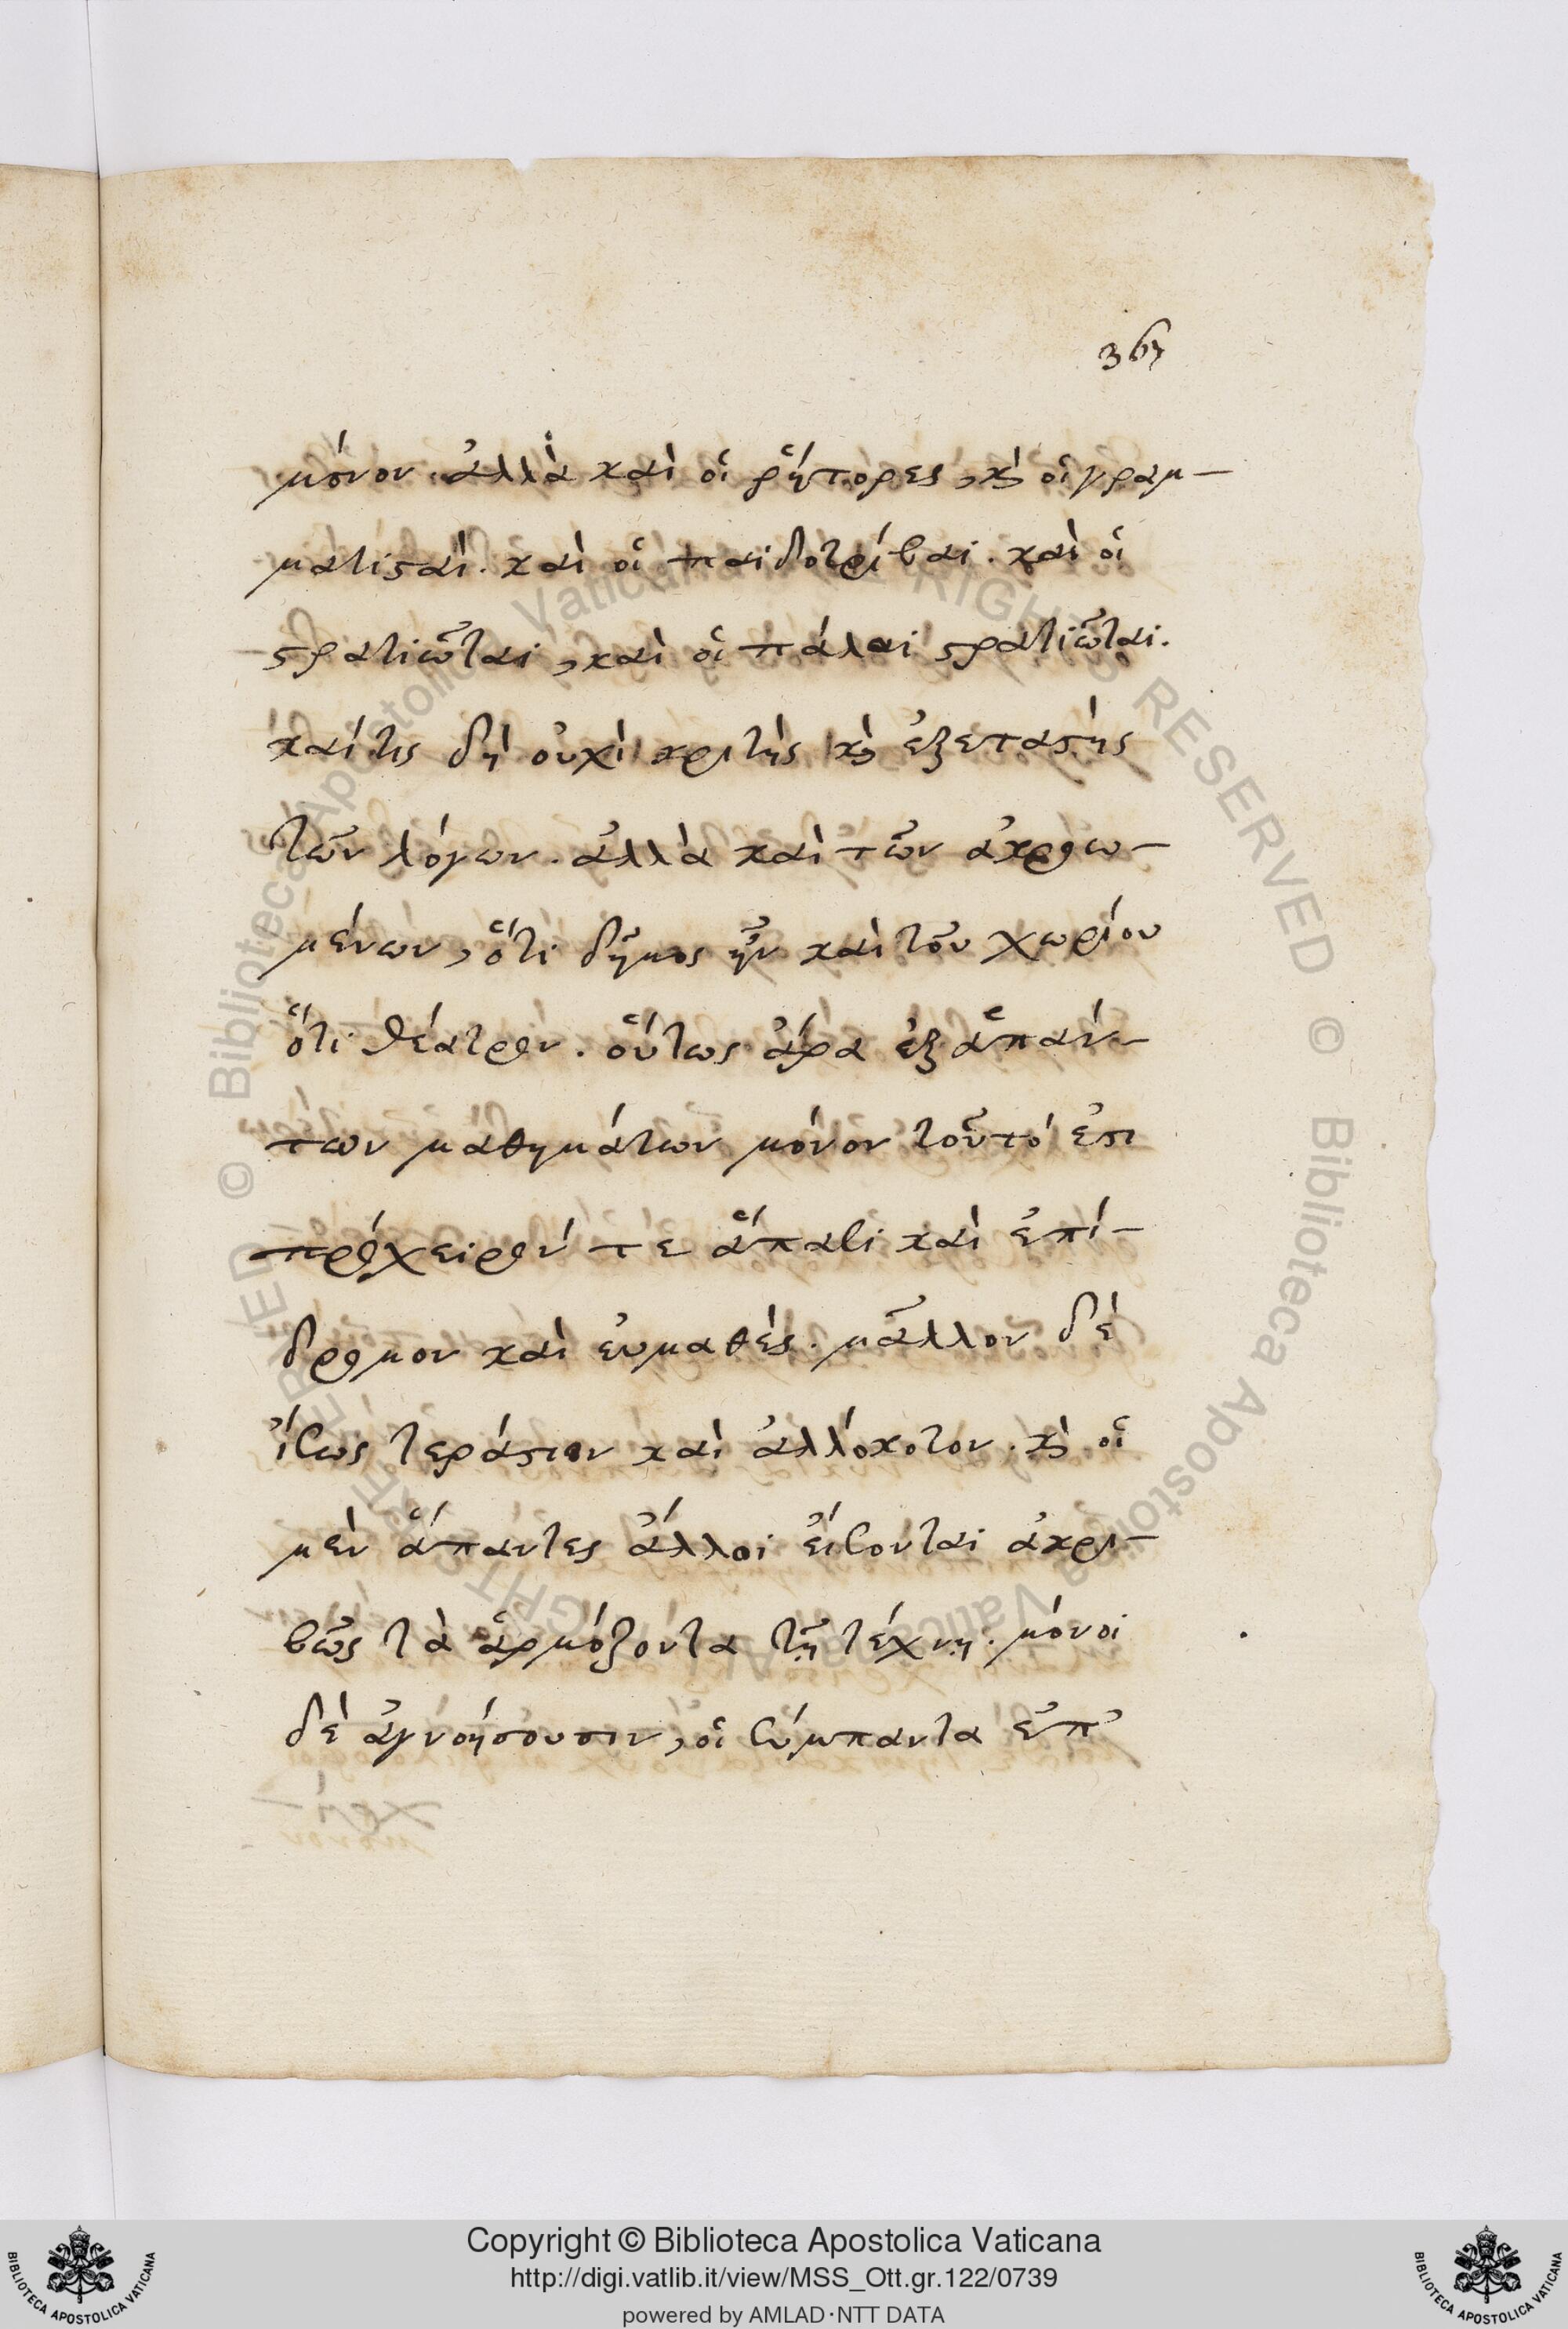 367
μόνον. ἀλλὰ καὶ οἱ ῥήτορες, κὶ οἱ γραμ-
ματισταὶ. καὶ οἱ παιδοτρίβαι. καὶ οἱ
στρατιῶται, καὶ οἱ πάλαι στρατιῶται.
καί τις δὴ οὐχὶ κριτὴς κὶ ἐξεταστὴς
τῶν λόγων. ἀλλὰ καὶ τῶν ἀκροω-
μένων, ὅτι δῆμος ἦν καὶ τοῦ χωρίου
ὅτι θέατρον. οὕτως ἄρα ἐξ ἁπάν-
των μαθημάτων μόνον τοῦτό ἐστι
πρόχειρόν τε ἅπασι καὶ ἐπί-
δρομον καὶ εὐμαθές. μᾶλλον δὲ
ἴσως τεράστιον καὶ ἀλλόκοτον. κὶ οἱ
μὲν ἅπαντες ἄλλοι εἴσονται ἀκρι-
βῶς τὰ ἁρμόζοντα τῇ τέχνῃ. μόνοι
δὲ ἀγνοήσουσιν, οἱ σύμπαντα ἐπ᾽
© Biblioteca Apostolica Vaticana ALL RIGHTS RESERVED
Copyright © Biblioteca Apostolica Vaticana
http://digi.vatlib.it/view/MSS_Ott.gr.122/0739
powered by AMLAD·NTT DATA
BIBLIOTECA APOSTOLICA VATICANA
BIBLIOTECA APOSTOLICA VATICANA